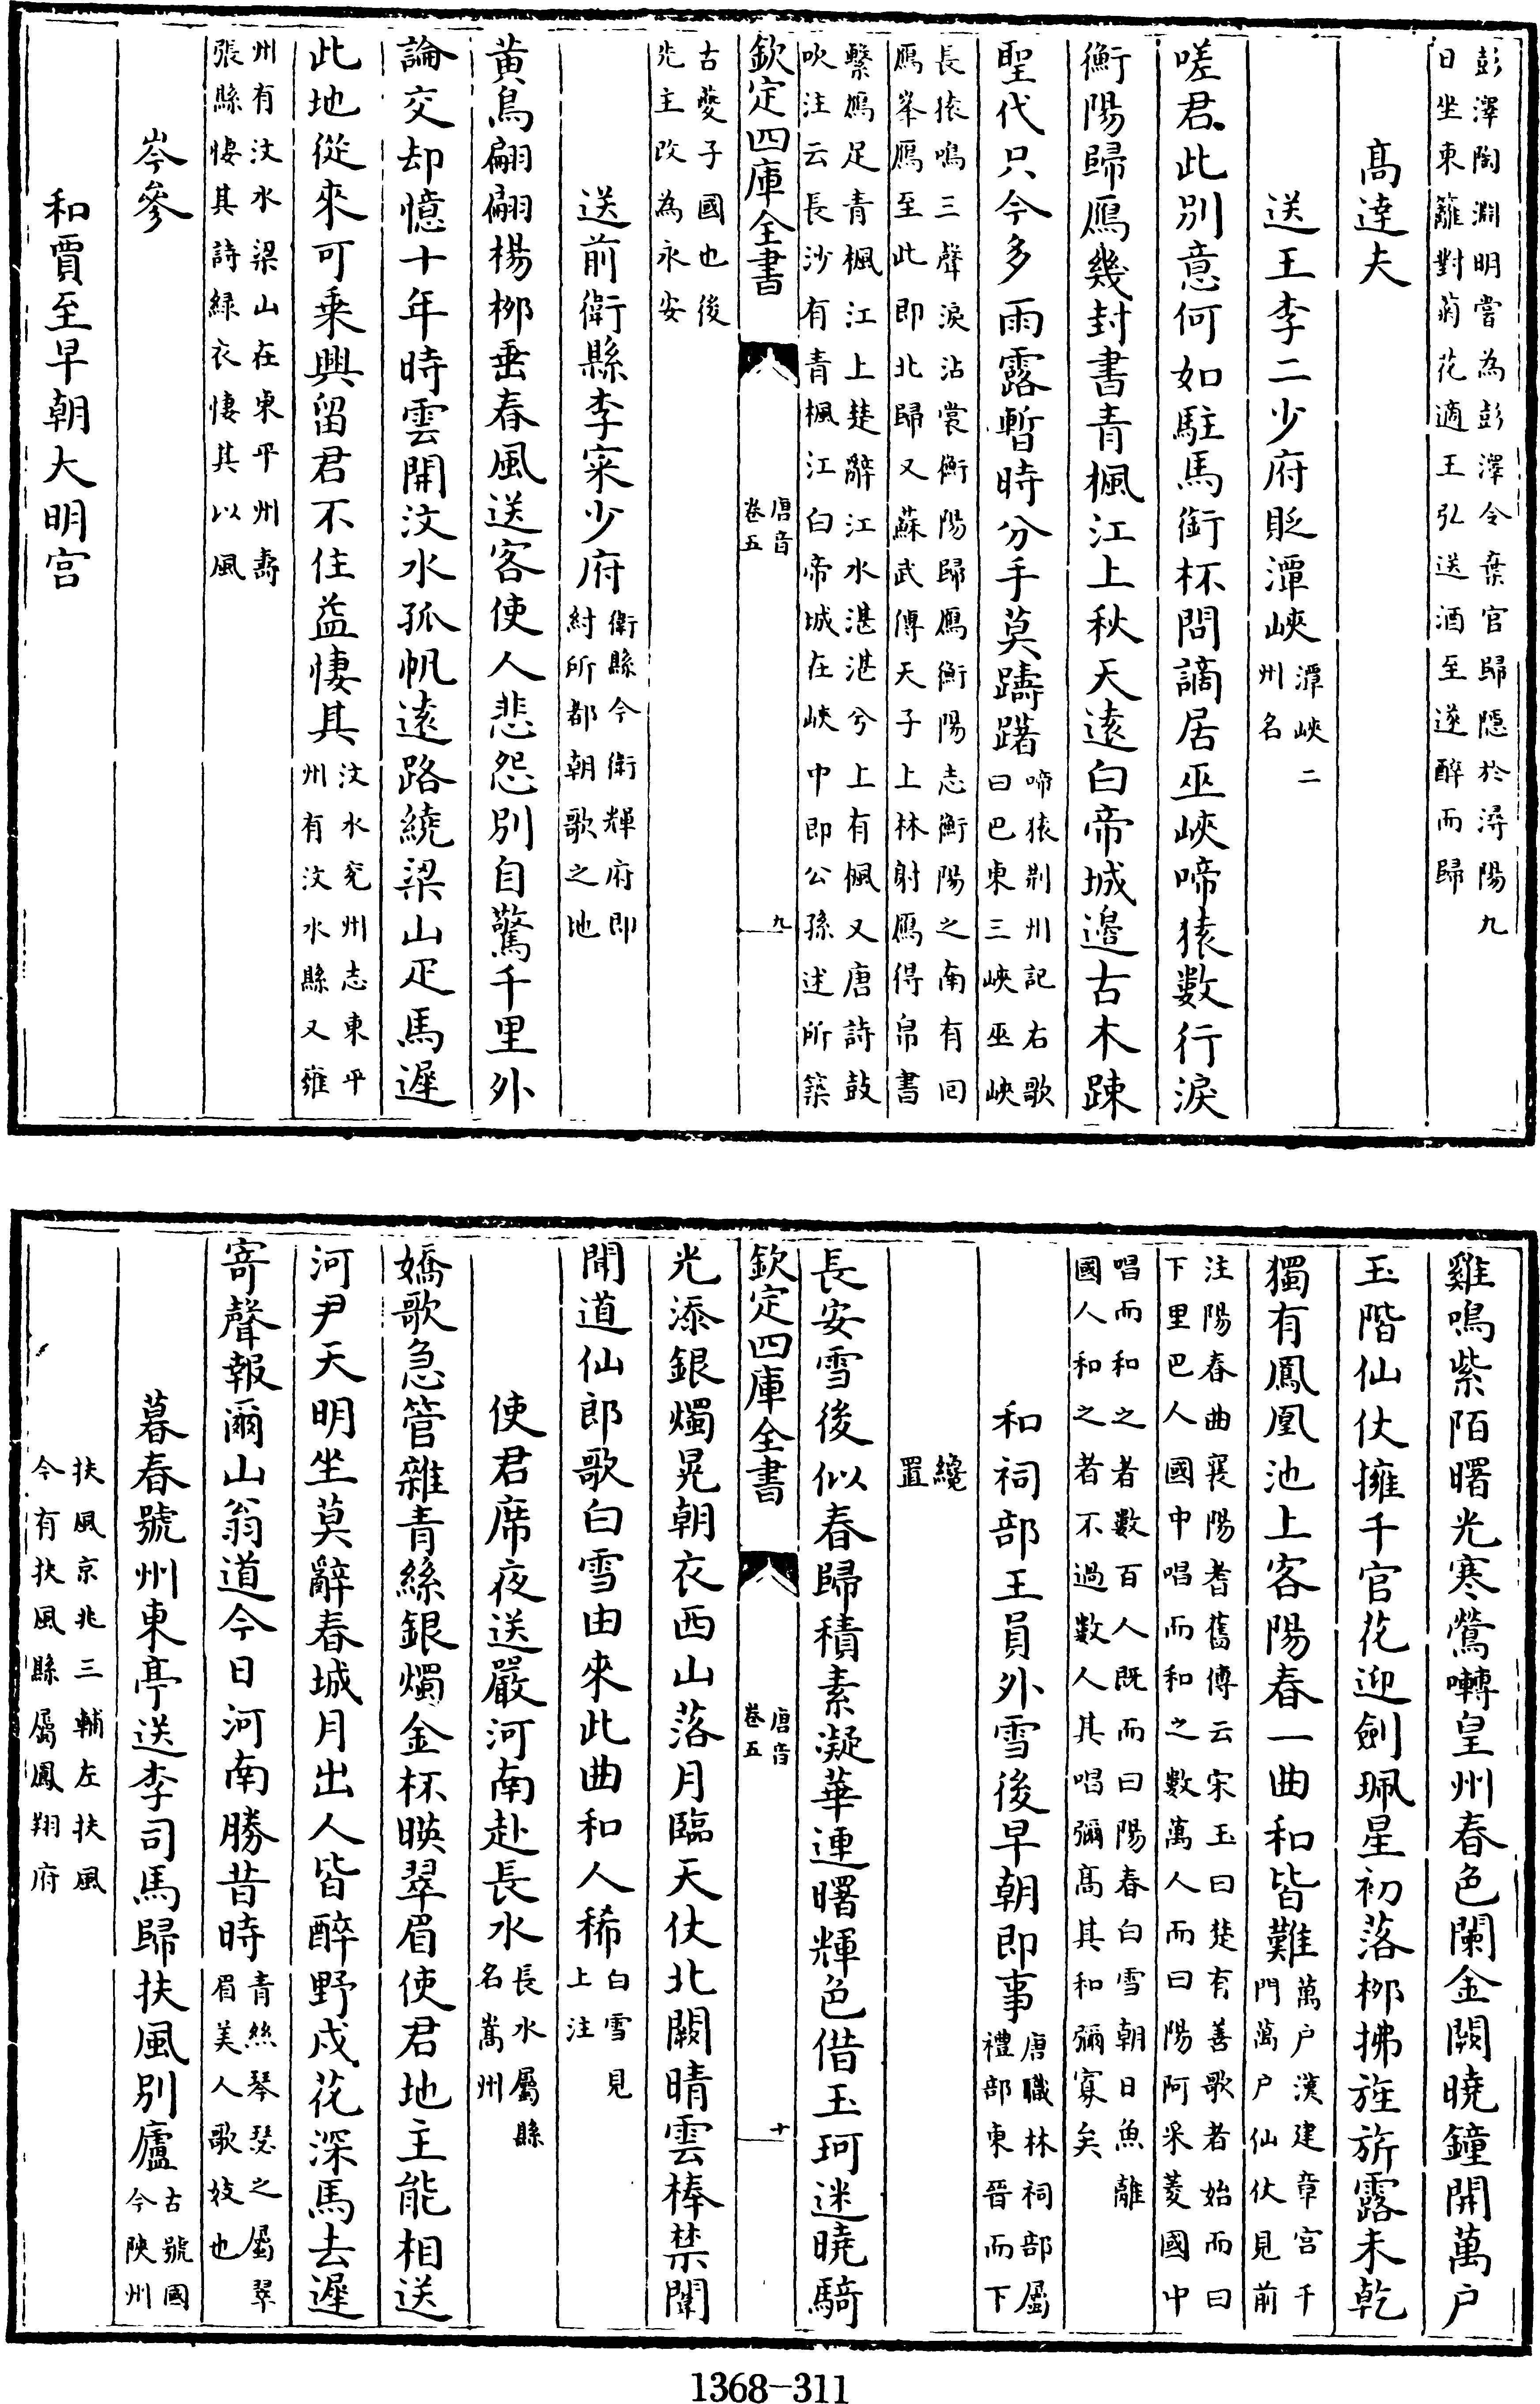 彭澤陶淵明嘗為彭澤令棄官歸隱於潯陽九
日坐東籬對菊花適王弘送酒至遂醉而歸
高達夫
送王李二少府貶潭峽潭峽二
州名
嗟君此別意何如駐馬銜杯問謫居巫峽啼猿數行淚
衡陽歸鴈幾封書青楓江上秋天遠白帝城邊古木踈
聖代只今多雨露暫時分手莫躊躇啼猿荆州記右歌
曰巴東三峽巫峽
長猿鳴三聲淚沾裳衡陽歸鴈衡陽志衡陽之南有回
鴈峯鴈至此即北歸又蘇武傳天子上林射鴈得帛書
繫鴈足青楓江上楚辭江水湛湛兮上有楓又唐詩鼓
吹注云長沙有青楓江白帝城在峽中即公孫述所築
欽定四庫全書
唐音
卷五
九
古夔子國也後
先主改為永安
送前衛縣李寀少府衛縣今衛輝府即
紂所都朝歌之地
黄鳥翩翩楊栁垂春風送客使人悲怨別自驚千里外
論交却憶十年時雲開汶水孤帆遠路繞梁山疋馬遲
此地從來可乗興留君不住益悽其汶水兖州志東平
州有汶水縣又雍
州有汶水梁山在東平州壽
張縣悽其詩緑衣悽其以風
岑參
和賈至早朝大明宫
雞鳴紫陌曙光寒鶯囀皇州春色闌金闕曉鐘開萬户
玉階仙仗擁千官花迎劍珮星初落栁拂旌旂露未乾
獨有鳳凰池上客陽春一曲和皆難萬户漢建章宫千
門萬户仙仗見前
注陽春曲襄陽耆舊傳云宋玉曰楚有善歌者始而曰
下里巴人國中唱而和之數萬人而曰陽阿采菱國中
唱而和之者數百人既而曰陽春白雪朝日魚離
國人和之者不過數人其唱彌髙其和彌寡矣
和祠部王員外雪後早朝即事唐職林祠部屬
禮部東晉而下
纔
置
長安雪後似春歸積素凝華連曙輝色借玉珂迷曉騎
欽定四庫全書
唐音
卷五
十
光添銀燭晃朝衣西山落月臨天仗北闕晴雲棒禁闈
聞道仙郎歌白雪由來此曲和人稀白雪見
上注
使君席夜送嚴河南赴長水長水屬縣
名嵩州
嬌歌急管雜青絲銀燭金杯暎翠眉使君地主能相送
河尹天明坐莫辭春城月出人皆醉野戍花深馬去遲
寄聲報爾山翁道今日河南勝昔時青絲琴瑟之屬翠
眉美人歌妓也
暮春號州東亭送李司馬歸扶風別廬古號國
今陜州
扶風京兆三輔左扶風
今有扶風縣屬鳳翔府
1368-311